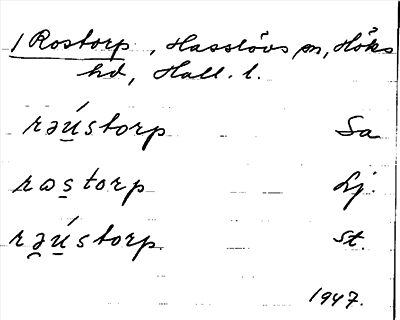 1 Rostorp, Hasslövs sn, Höks
hd, Hall. l.
rəú̲storp Sa
rɷs̲torp Lj.
rə̯ú̲storp St.
1947.